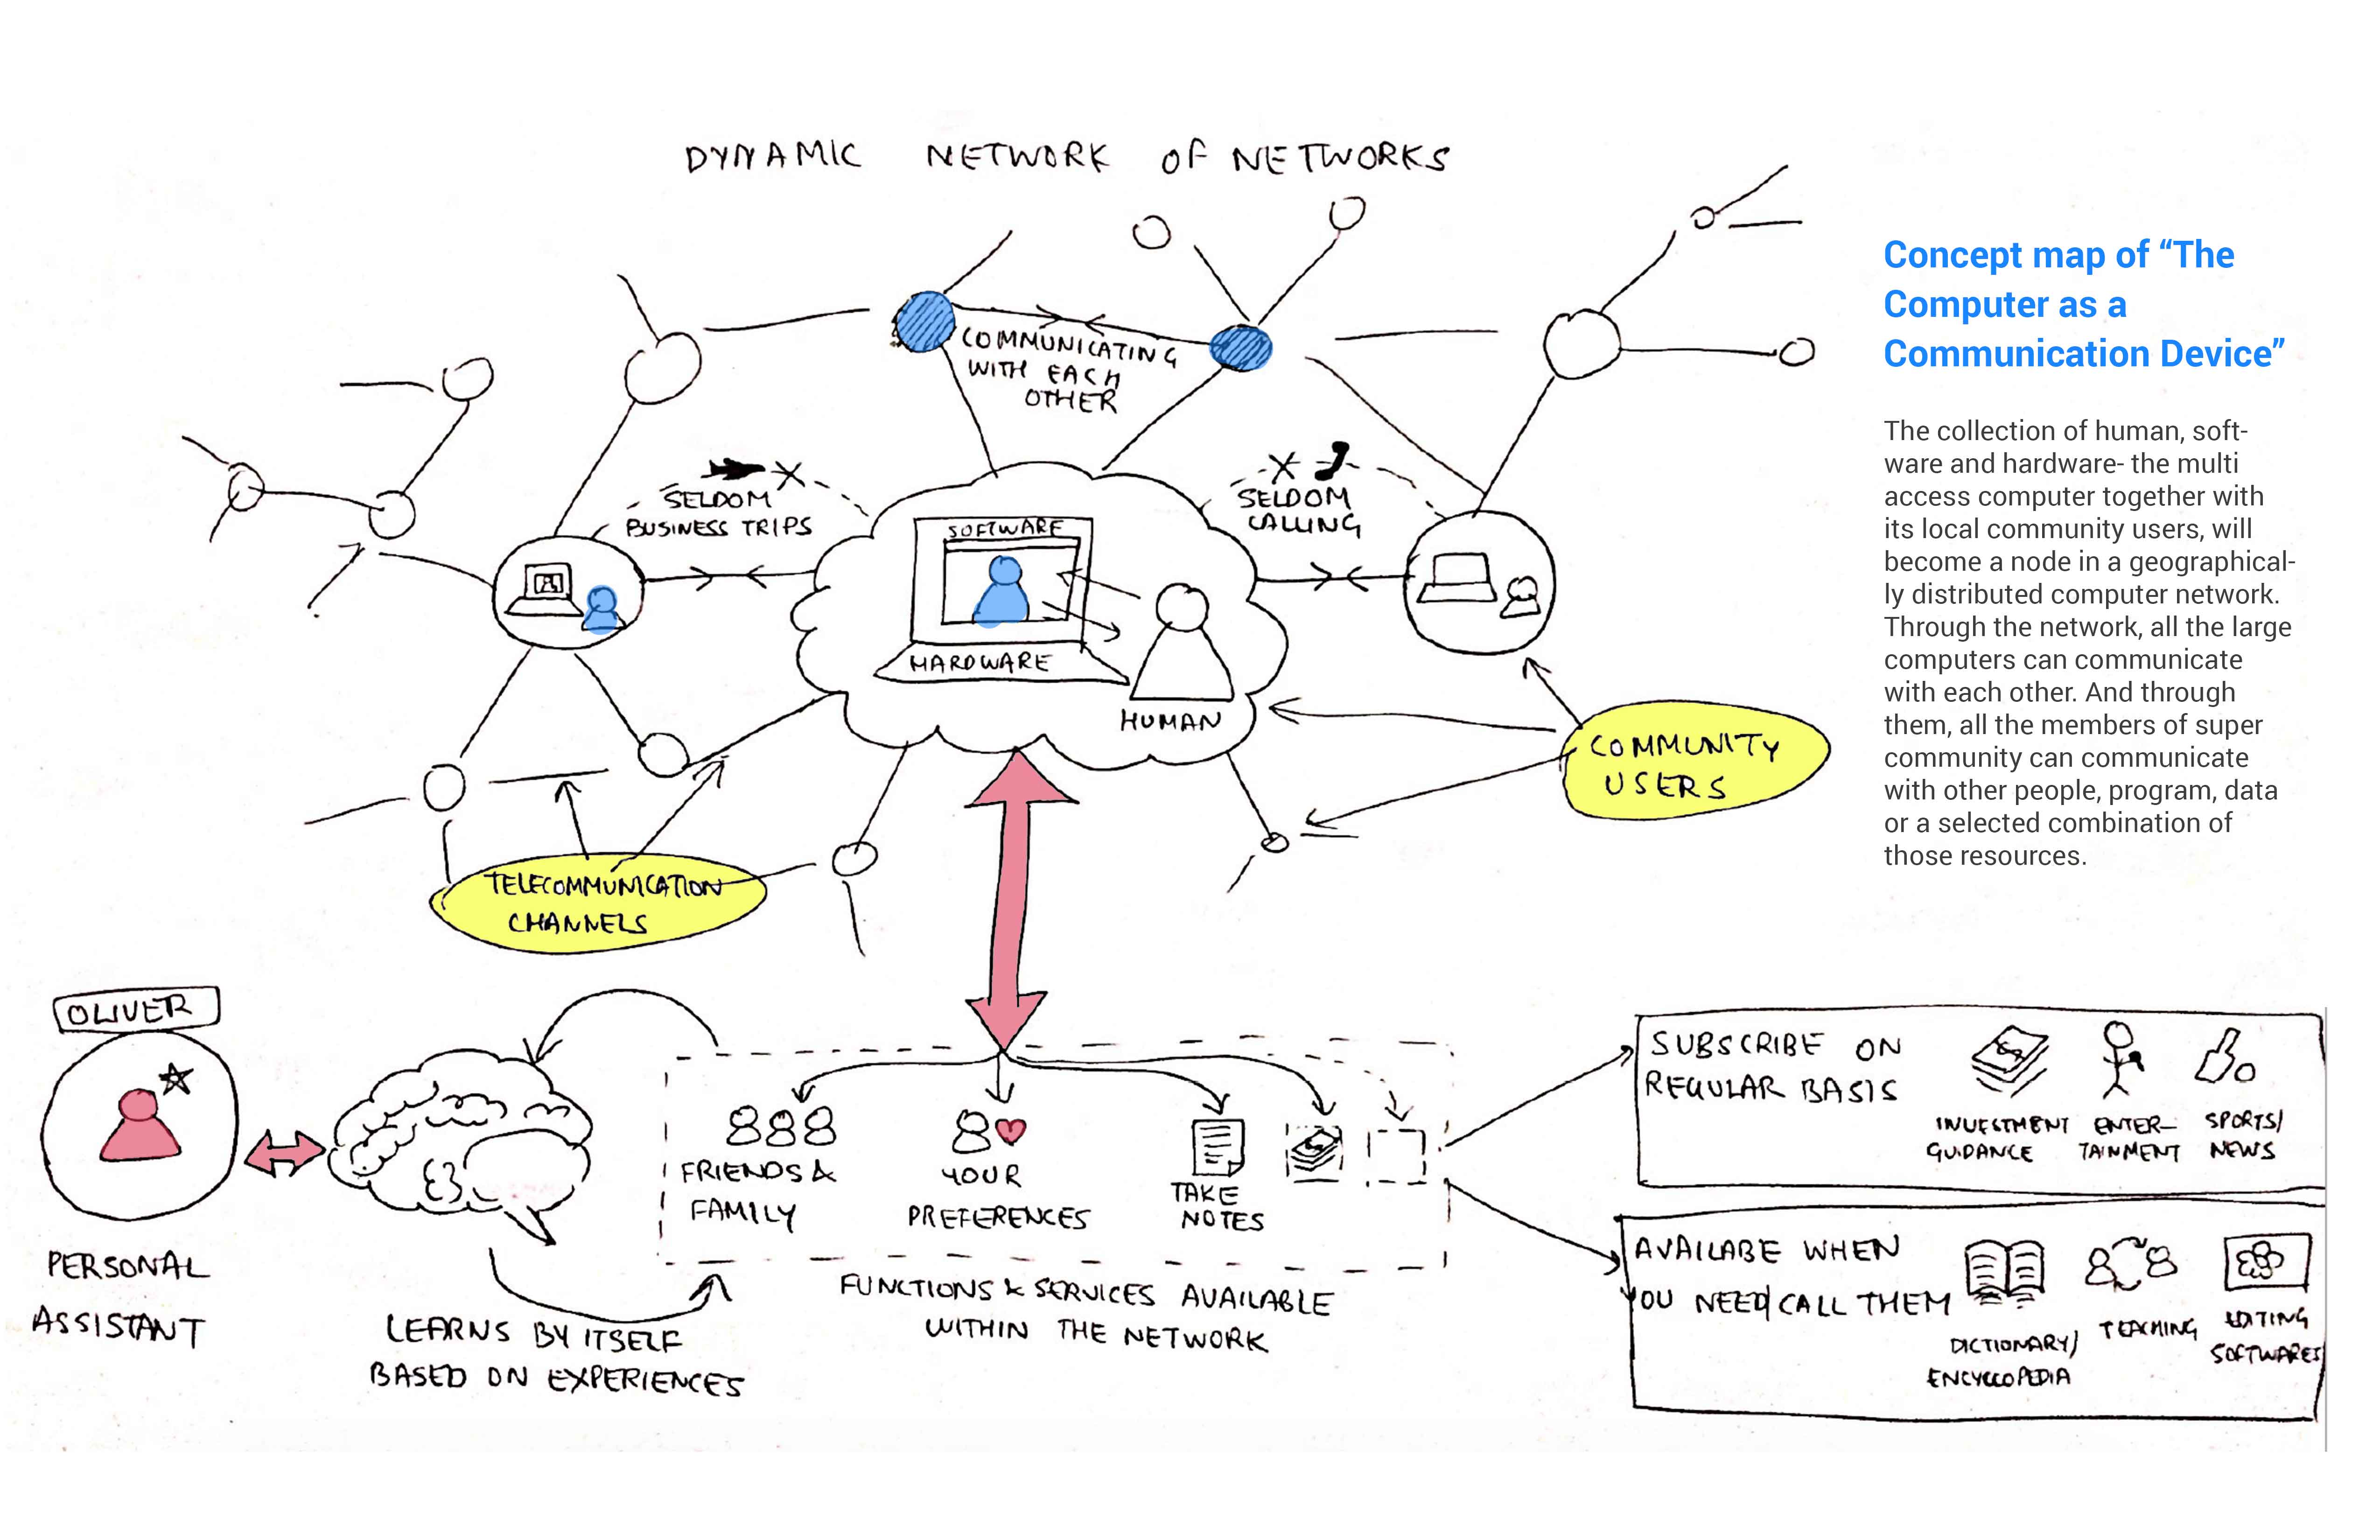 DYNAMIC NETWORK OF NETWORKS
COMMUNICATING
WITH EACH
OTHER
SELDOM
BUSINESS TRIPS
SELDOM
CALLING
SOFTWARE
HARDWARE
HUMAN
COMMUNITY
USERS
TELECOMMUNICATION
CHANNELS
Concept map of “The
Computer as a
Communication Device”
The collection of human, soft-
ware and hardware- the multi
access computer together with
its local community users, will
become a node in a geographical-
ly distributed computer network.
Through the network, all the large
computers can communicate
with each other. And through
them, all the members of super
community can communicate
with other people, program, data
or a selected combination of
those resources.
OLIVER
PERSONAL
ASSISTANT
LEARNS BY ITSELF
BASED ON EXPERIENCES
FRIENDS &
FAMILY
YOUR
PREFERENCES
TAKE
NOTES
FUNCTIONS & SERVICES AVAILABLE
WITHIN THE NETWORK
SUBSCRIBE ON
REGULAR BASIS
INVESTMENT
GUIDANCE
ENTER-
TAINMENT
SPORTS/
NEWS
AVAILABE WHEN
YOU NEED/CALL THEM
DICTIONARY/
ENCYCLOPEDIA
TEACHING
EDITING
SOFTWARES